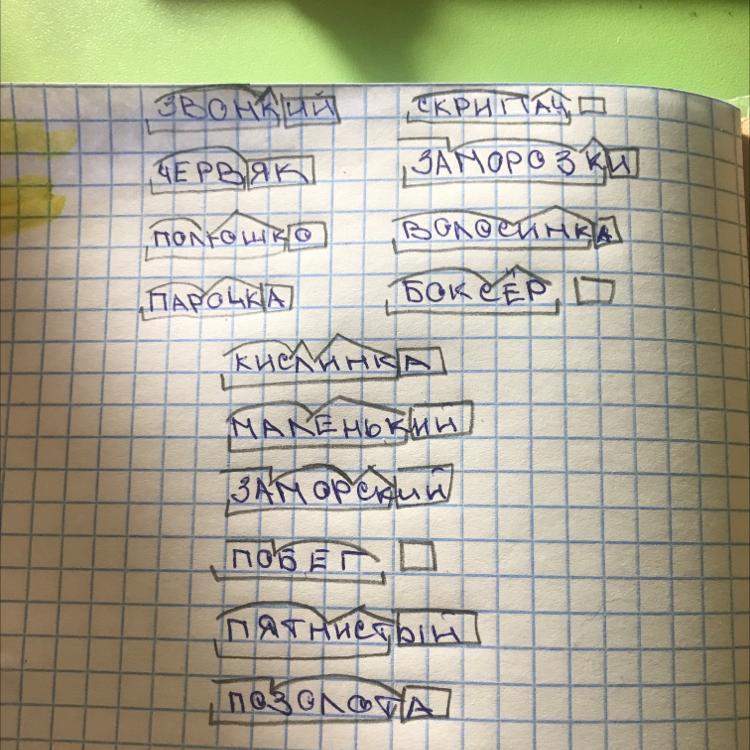 ЗВОНКИЙ СКРИПАЧ
ЧЕРВЯК ЗАМОРОЗКИ
ПОЛЮШКО ВОЛОСИНКА
ПАРОЧКА БОКСЁР
КИСЛИНКА
МАЛЕНЬКИЙ
ЗАМОРСКИЙ
ПОБЕГ
ПЯТНИСТЫЙ
ПОЗОЛОТА